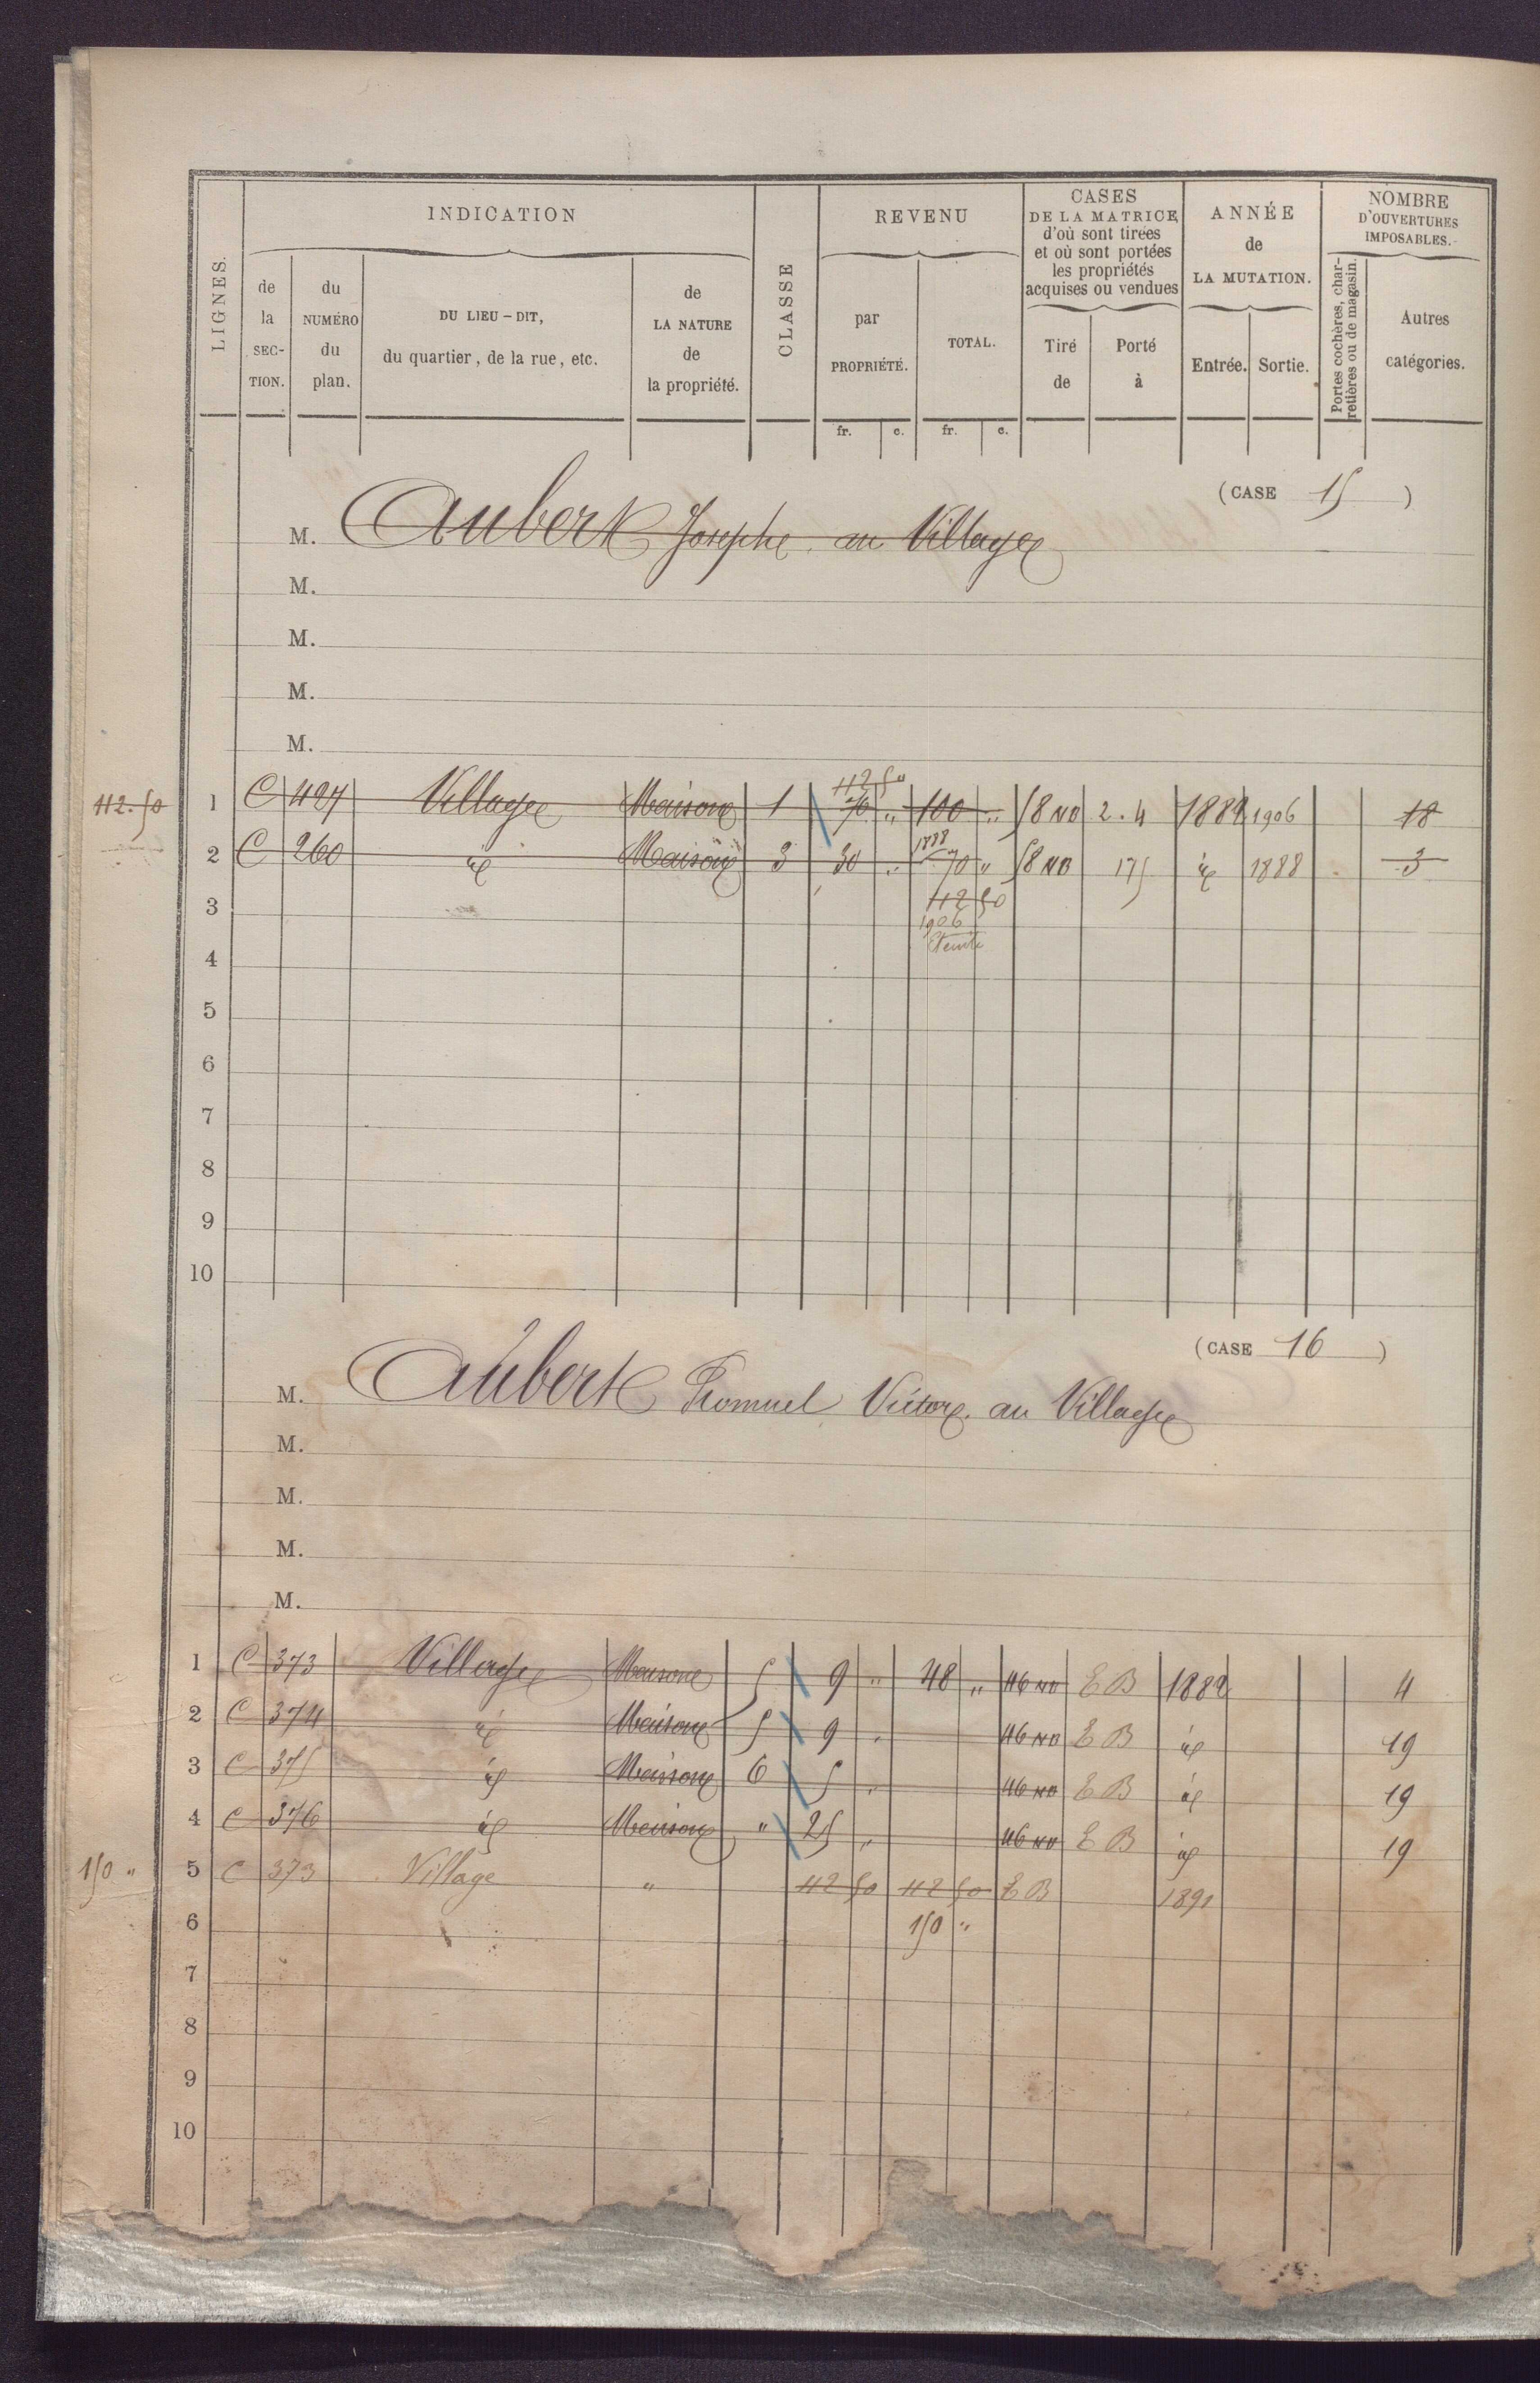 LIGNES.
INDICATION
de la SECTION.
du NUMÉRO du plan.
DU LIEU-DIT, du quartier, de la rue, etc.
de LA NATURE de la propriété.
CLASSE
REVENU
par PROPRIÉTÉ.
TOTAL.
fr. c. fr. c.
CASES DE LA MATRICE d'où sont tirées et où sont portées les propriétés acquises ou vendues
Tiré de
Porté à
ANNÉE de LA MUTATION.
Entrée. Sortie.
NOMBRE D'OUVERTURES IMPOSABLES.
Portes cochères, charretières ou de magasin.
Autres catégories.
(CASE 15)
M. Aubert Joseph au Village
M.
M.
M.
M.
112 50
112.50 1 C 427 Village Maison 1 70 " 100 " 58 NB 2.4 1882 1906 18
1888
2 C 260 id Maison 3 30 " 70 " 58 NB 175 id 1888 3
3 112 50
1906
4
5
6
7
8
9
10
(CASE 16)
M. Aubert Victor au Village
M.
M.
M.
M.
1 C 373 Village Maison 5 9 " 48 " 46 NB EB 1882 4
2 C 374 id Maison 5 9 " 46 NB EB id 19
3 C 375 id Maison 6 5 " 46 NB EB id 19
4 C 376 id Maison " 25 " 46 NB EB id 19
150 " 5 C 373 Village " 112 50 112 50 EB 1891
6 150 "
7
8
9
10